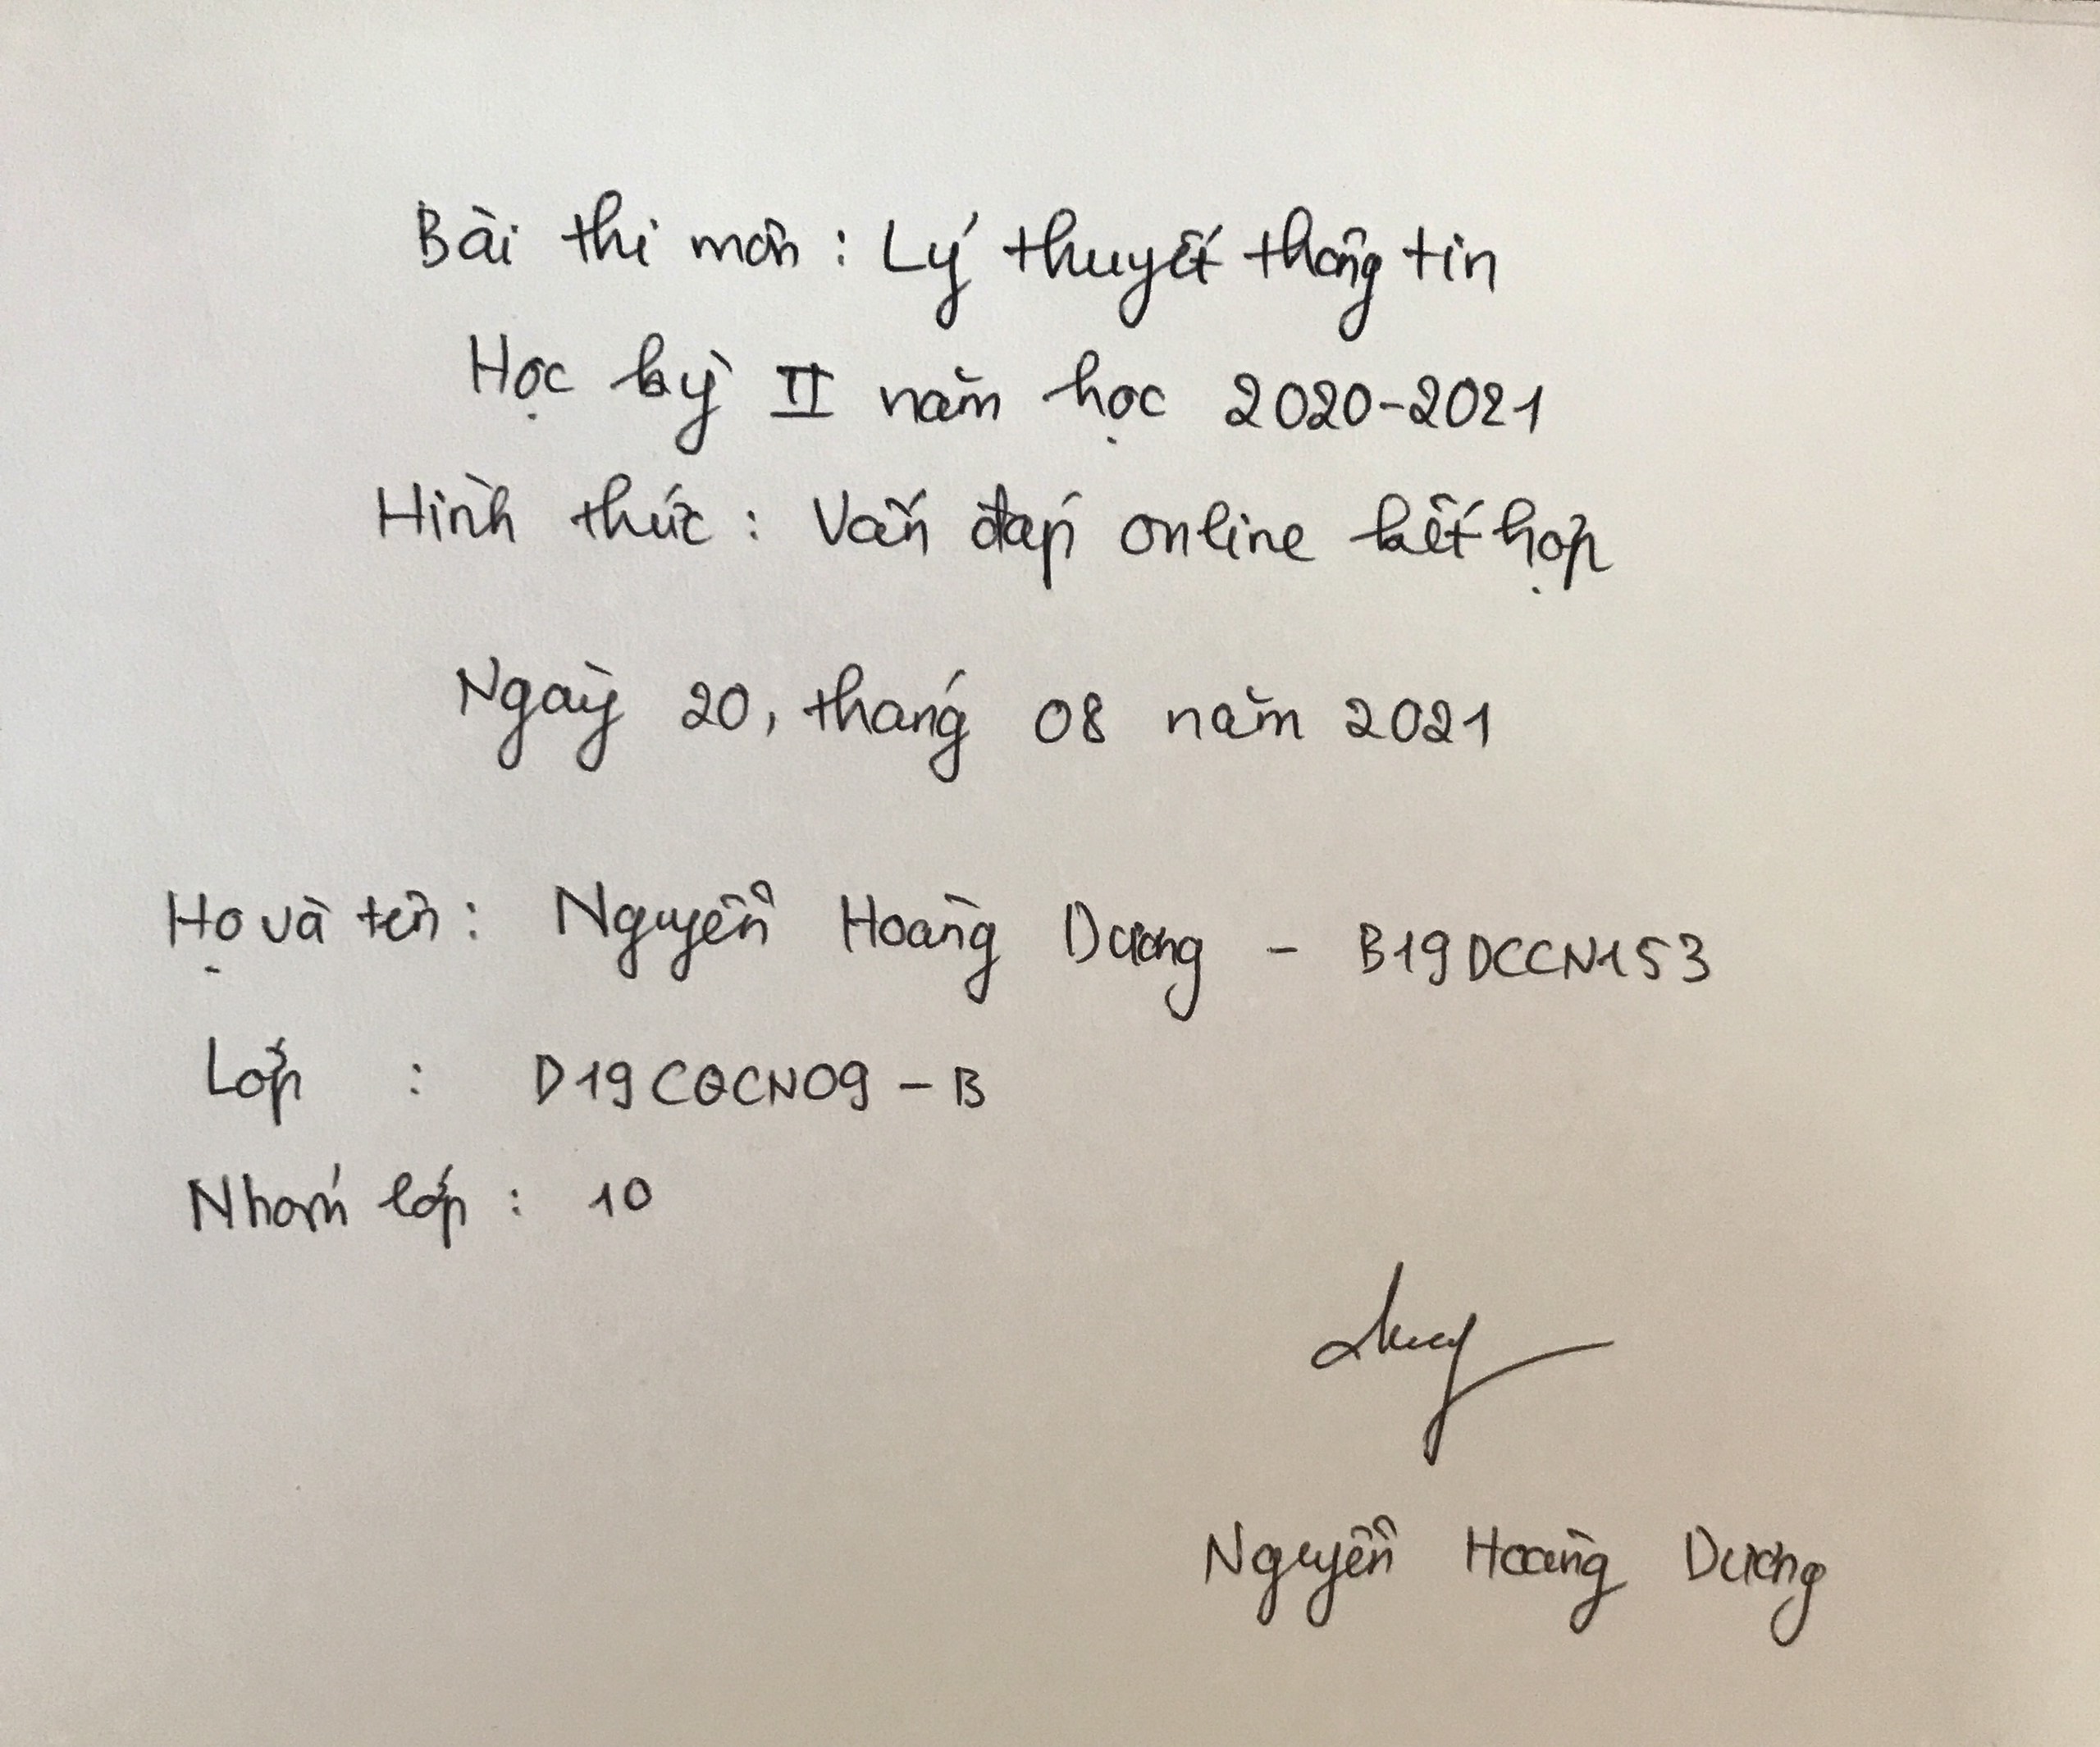 Bài thi môn : Lý thuyết thông tin
Học kỳ II năm học 2020-2021
Hình thức : Vấn đáp online kết hợp
Ngày 20, tháng 08 năm 2021
Họ và tên : Nguyễn Hoàng Dương - B19DCCN153
Lớp : D19CQCN09 - B
Nhóm lớp : 10
Nguyễn Hoàng Dương